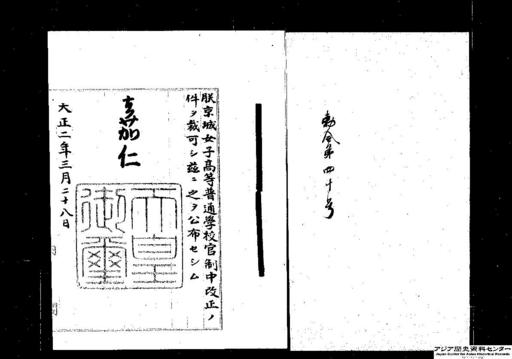 勅令第四十号
朕京城女子高等普通學校官制中改正ノ
件ヲ裁可シ茲ニ之ヲ公布セシム
嘉仁
天皇
御璽
大正二年三月二十八日
アジア歴史資料センター
Japan Center for Asian Historical Records